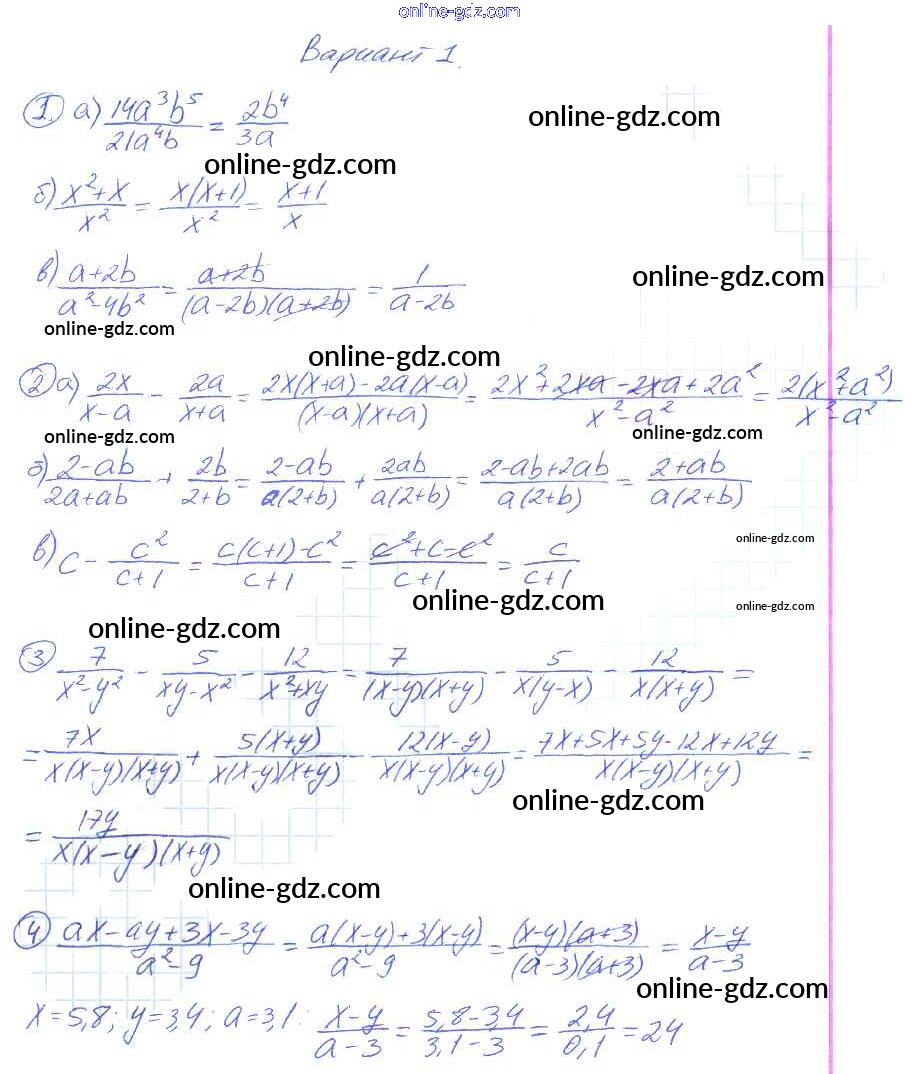 online-gdz.com
Вариант 1.
1. а) 14a³b⁵/21a⁴b = 2b⁴/3a
online-gdz.com
online-gdz.com
б) x²+x/x² = x(x+1)/x² = x+1/x
в) a+2b/a²-4b² = a+2b/(a-2b)(a+2b) = 1/a-2b
online-gdz.com
online-gdz.com
online-gdz.com
2 а) 2x/x-a - 2a/x+a = 2x(x+a)-2a(x-a)/(x-a)(x+a) = 2x²+2xa-2xa+2a²/x²-a² = 2(x²+a²)/x²-a²
online-gdz.com
online-gdz.com
б) 2-ab/2a+ab + 2b/2+b = 2-ab/a(2+b) + 2ab/a(2+b) = 2-ab+2ab/a(2+b) = 2+ab/a(2+b)
online-gdz.com
в) c - c²/c+1 = c(c+1)-c²/c+1 = c²+c-c²/c+1 = c/c+1
online-gdz.com
online-gdz.com
online-gdz.com
3 7/x²-y² - 5/xy-x² - 12/x²+xy = 7/(x-y)(x+y) - 5/x(y-x) - 12/x(x+y) =
= 7x/x(x-y)(x+y) + 5(x+y)/x(x-y)(x+y) - 12(x-y)/x(x-y)(x+y) = 7x+5x+5y-12x+12y/x(x-y)(x+y) =
online-gdz.com
= 17y/x(x-y)(x+y)
online-gdz.com
4 ax-ay+3x-3y/a²-9 = a(x-y)+3(x-y)/a²-9 = (x-y)(a+3)/(a-3)(a+3) = x-y/a-3
online-gdz.com
x=5,8; y=3,4; a=3,1: x-y/a-3 = 5,8-3,4/3,1-3 = 2,4/0,1 = 24